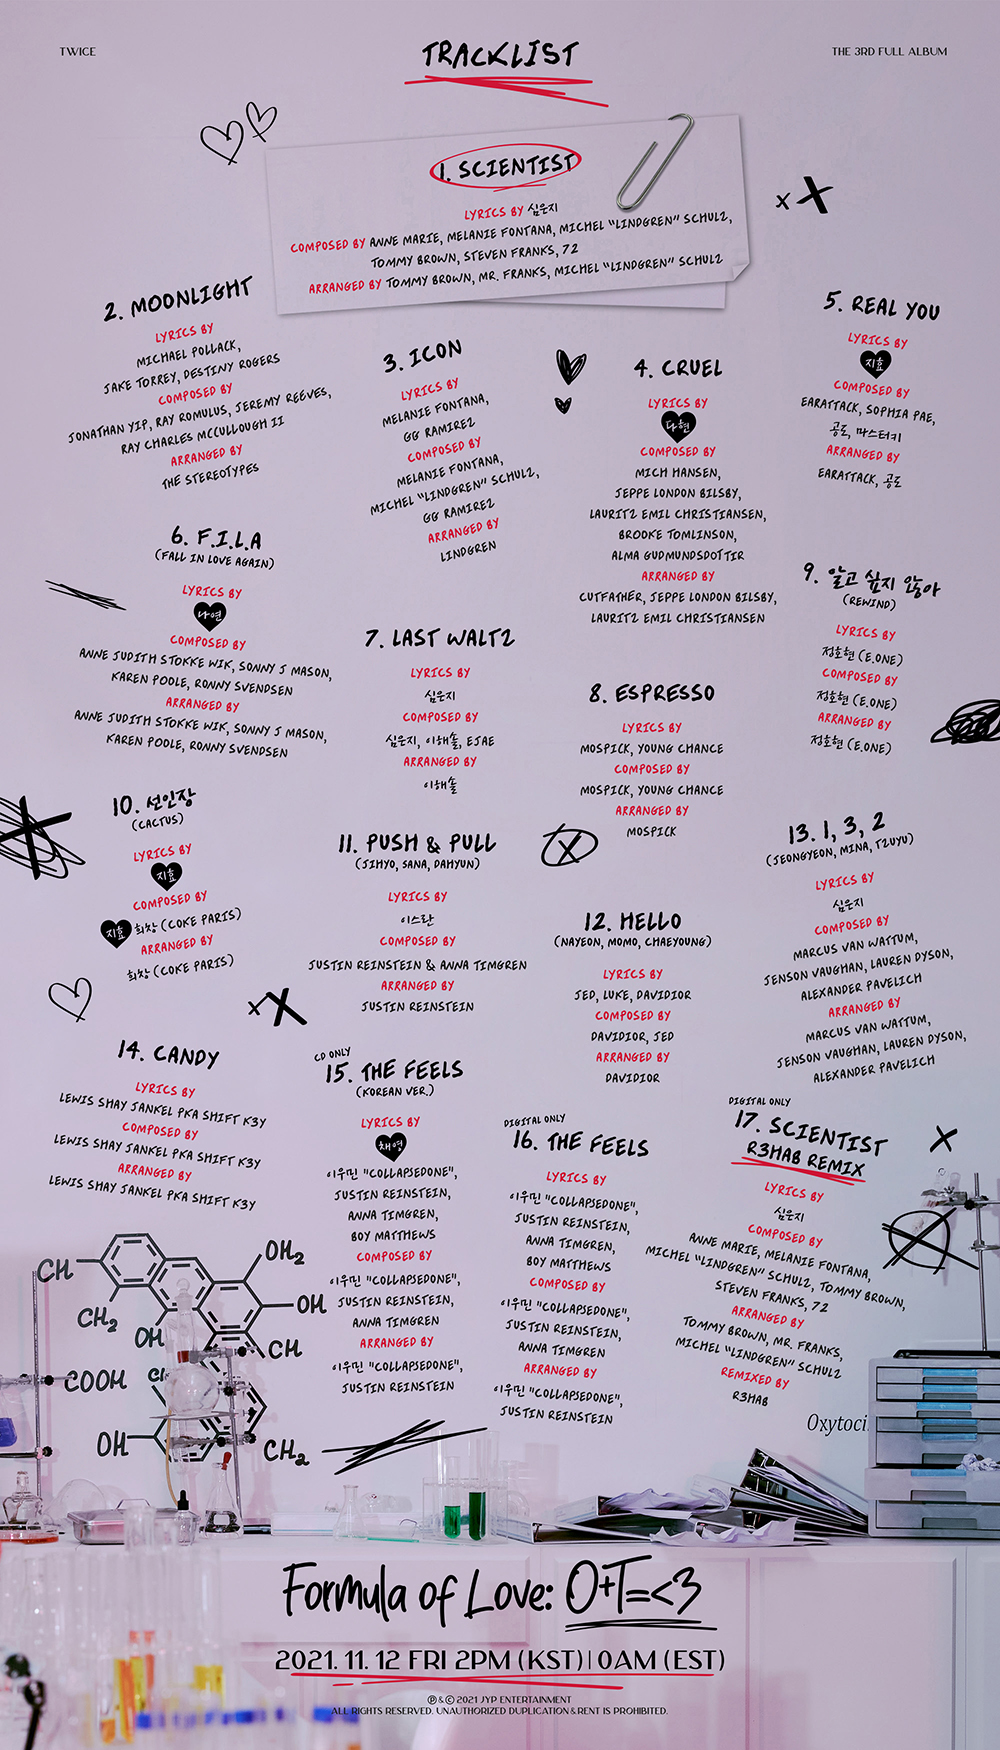 TWICE
TRACKLIST
THE 3RD FULL ALBUM
1. SCIENTIST
LYRICS BY 심은지
COMPOSED BY ANNE MARIE, MELANIE FONTANA, MICHEL "LINDGREN" SCHULZ,
TOMMY BROWN, STEVEN FRANKS, 72
ARRANGED BY TOMMY BROWN, MR. FRANKS, MICHEL "LINDGREN" SCHULZ
2. MOONLIGHT
LYRICS BY
MICHAEL POLLACK,
JAKE TORREY, DESTINY ROGERS
COMPOSED BY
JONATHAN YIP, RAY ROMULUS, JEREMY REEVES,
RAY CHARLES MCCULLOUGH II
ARRANGED BY
THE STEREOTYPES
3. ICON
LYRICS BY
MELANIE FONTANA,
GG RAMIREZ
COMPOSED BY
MELANIE FONTANA,
MICHEL "LINDGREN" SCHULZ,
GG RAMIREZ
ARRANGED BY
LINDGREN
4. CRUEL
LYRICS BY
다현
COMPOSED BY
MICH HANSEN,
JEPPE LONDON BILSBY,
LAURITZ EMIL CHRISTIANSEN,
BROOKE TOMLINSON,
ALMA GUDMUNDSDOTTIR
ARRANGED BY
CUTFATHER, JEPPE LONDON BILSBY,
LAURITZ EMIL CHRISTIANSEN
5. REAL YOU
LYRICS BY
지효
COMPOSED BY
EARATTACK, SOPHIA PAE,
공도, 마스터키
ARRANGED BY
EARATTACK, 공도
6. F.I.L.A
(FALL IN LOVE AGAIN)
LYRICS BY
나연
COMPOSED BY
ANNE JUDITH STOKKE WIK, SONNY J MASON,
KAREN POOLE, RONNY SVENDSEN
ARRANGED BY
ANNE JUDITH STOKKE WIK, SONNY J MASON,
KAREN POOLE, RONNY SVENDSEN
7. LAST WALTZ
LYRICS BY
심은지
COMPOSED BY
심은지, 이해솔, EJAE
ARRANGED BY
이해솔
8. ESPRESSO
LYRICS BY
MOSPICK, YOUNG CHANCE
COMPOSED BY
MOSPICK, YOUNG CHANCE
ARRANGED BY
MOSPICK
9. 알고 싶지 않아
(REWIND)
LYRICS BY
정호현 (E.ONE)
COMPOSED BY
정호현 (E.ONE)
ARRANGED BY
정호현 (E.ONE)
10. 선인장
(CACTUS)
LYRICS BY
지효
COMPOSED BY
지효 희창 (COKE PARIS)
ARRANGED BY
희창 (COKE PARIS)
11. PUSH & PULL
(JIHYO, SANA, DAHYUN)
LYRICS BY
이스란
COMPOSED BY
JUSTIN REINSTEIN & ANNA TIMGREN
ARRANGED BY
JUSTIN REINSTEIN
12. HELLO
(NAYEON, MOMO, CHAEYOUNG)
LYRICS BY
JED, LUKE, DAVIDIOR
COMPOSED BY
DAVIDIOR, JED
ARRANGED BY
DAVIDIOR
13. 1, 3, 2
(JEONGYEON, MINA, TZUYU)
LYRICS BY
심은지
COMPOSED BY
MARCUS VAN WATTUM,
JENSON VAUGHAN, LAUREN DYSON,
ALEXANDER PAVELICH
ARRANGED BY
MARCUS VAN WATTUM,
JENSON VAUGHAN, LAUREN DYSON,
ALEXANDER PAVELICH
14. CANDY
LYRICS BY
LEWIS SHAY JANKEL PKA SHIFT K3Y
COMPOSED BY
LEWIS SHAY JANKEL PKA SHIFT K3Y
ARRANGED BY
LEWIS SHAY JANKEL PKA SHIFT K3Y
CD ONLY
15. THE FEELS
(KOREAN VER.)
LYRICS BY
채영
이우민 "COLLAPSEDONE",
JUSTIN REINSTEIN,
ANNA TIMGREN,
BOY MATTHEWS
COMPOSED BY
이우민 "COLLAPSEDONE",
JUSTIN REINSTEIN,
ANNA TIMGREN
ARRANGED BY
이우민 "COLLAPSEDONE",
JUSTIN REINSTEIN
DIGITAL ONLY
16. THE FEELS
LYRICS BY
이우민 "COLLAPSEDONE",
JUSTIN REINSTEIN,
ANNA TIMGREN,
BOY MATTHEWS
COMPOSED BY
이우민 "COLLAPSEDONE",
JUSTIN REINSTEIN,
ANNA TIMGREN
ARRANGED BY
이우민 "COLLAPSEDONE",
JUSTIN REINSTEIN
DIGITAL ONLY
17. SCIENTIST
R3HAB REMIX
LYRICS BY
심은지
COMPOSED BY
ANNE MARIE, MELANIE FONTANA,
MICHEL "LINDGREN" SCHULZ, TOMMY BROWN,
STEVEN FRANKS, 72
ARRANGED BY
TOMMY BROWN, MR. FRANKS,
MICHEL "LINDGREN" SCHULZ
REMIXED BY
R3HAB
CH
OH2
CH2
OH
OH
CH
COOH
OH
CH2
Formula of Love: O+T=<3
2021. 11. 12 FRI 2PM (KST) | 0AM (EST)
Ⓟ & © 2021 JYP ENTERTAINMENT
ALL RIGHTS RESERVED. UNAUTHORIZED DUPLICATION & RENT IS PROHIBITED.